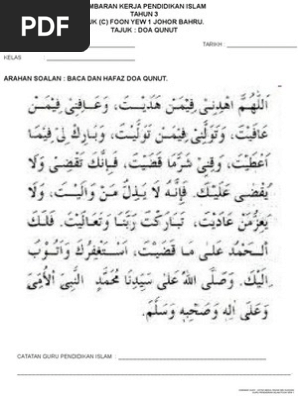 PDF
MBARAN KERJA PENDIDIKAN ISLAM
TAHUN 3
UK (C) FOON YEW 1 JOHOR BAHRU.
TAJUK : DOA QUNUT
TARIKH :
KELAS
ARAHAN SOALAN : BACA DAN HAFAZ DOA QUNUT.
اَللَّهُمَّ اهْدِنِي فِيْمَنْ هَدَيْتَ، وَعَافِنِي فِيْمَنْ
عَافَيْتَ، وَتَوَلَّنِي فِيْمَنْ تَوَلَّيْتَ، وَبَارِكْ لِي فِيْمَا
أَعْطَيْتَ، وَقِنِي شَرَّمَا قَضَيْتَ، فَإِنَّكَ تَقْضِى وَلَا
يُقْضَى عَلَيْكَ. فَإِنَّهُ لَا يَذِلُّ مَنْ وَالَيْتَ، وَلَا
يَعِزُّمَنْ عَادَيْتَ، تَبَارَكْتَ رَبَّنَا وَتَعَالَيْتَ. فَلَكَ
الْحَمْدُ عَلَى مَا قَضَيْتَ، اَسْتَغْفِرُكَ وَاَتُوْبُ
اِلَيْكَ. وَصَلَّى اللهُ عَلَى سَيِّدِنَا مُحَمَّدٍ النَّبِيِّ الْأُمِّيِّ
وَعَلَى اٰلِهِ وَصَحْبِهِ وَسَلَّمَ.
CATATAN GURU PENDIDIKAN ISLAM :